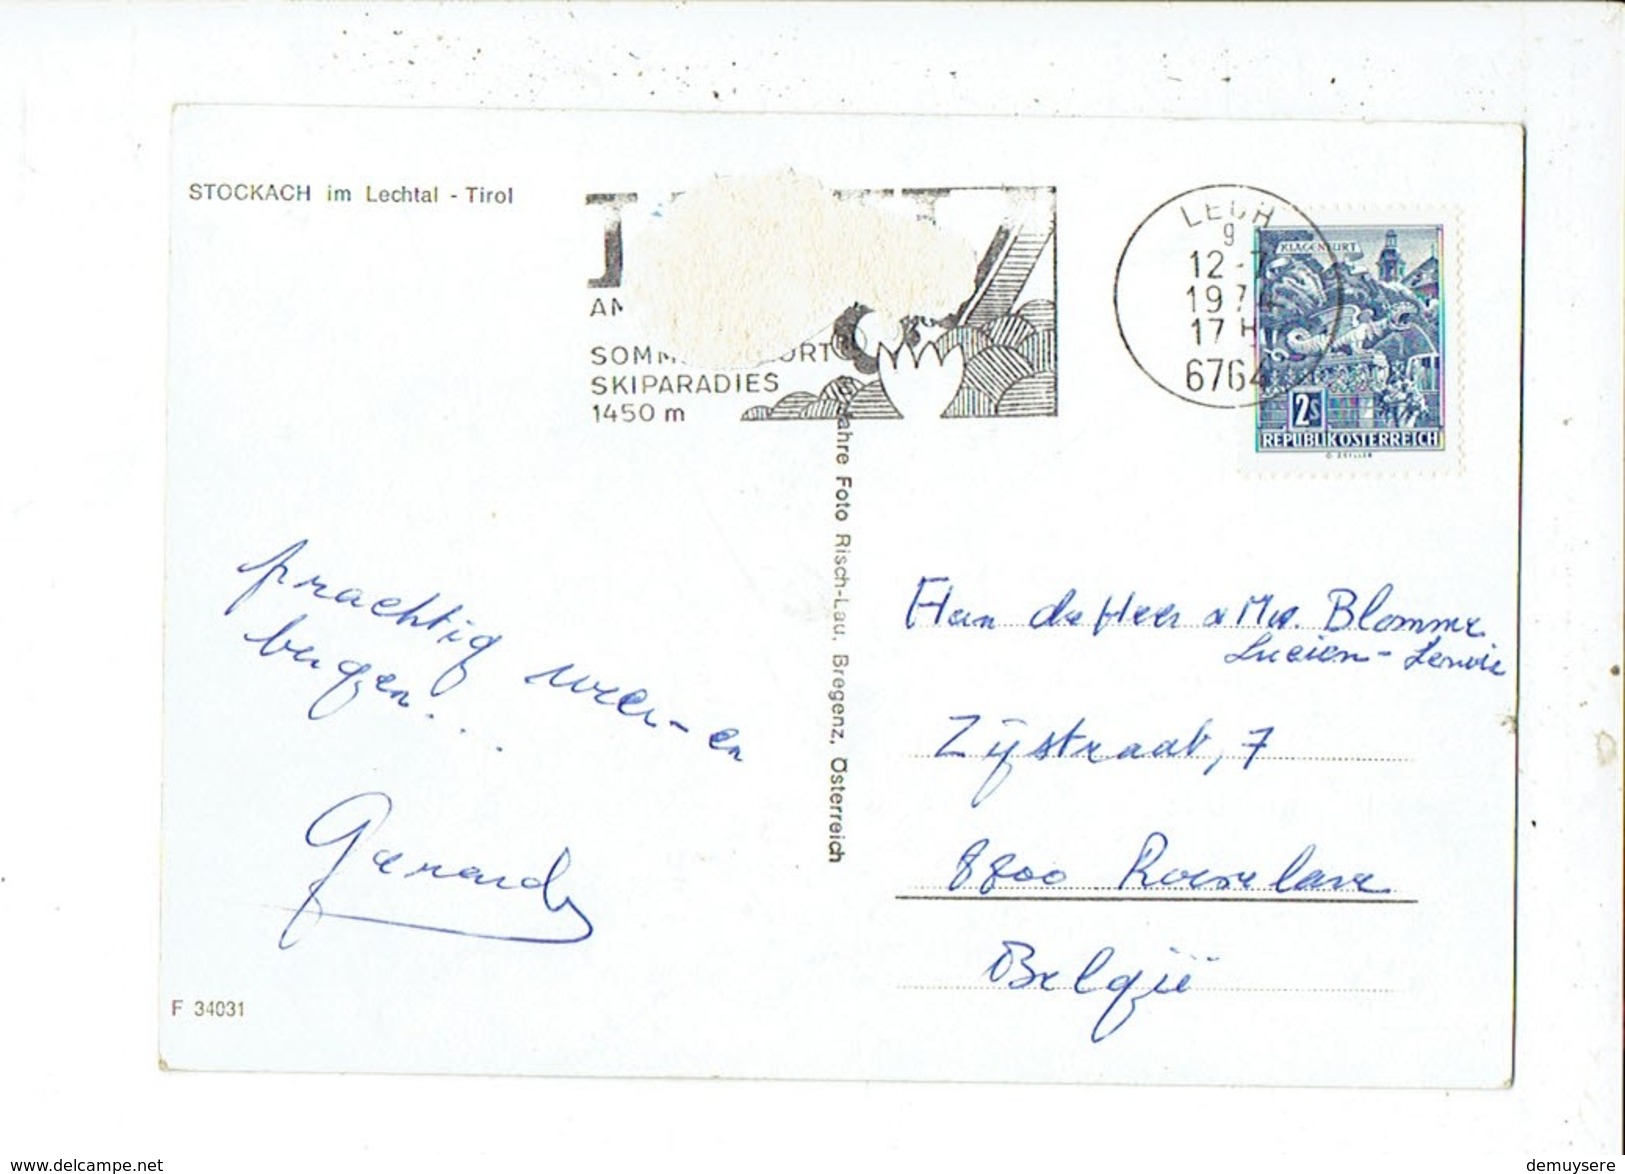 STOCKACH im Lechtal - Tirol
SKIPARADIES
1450 m
LECH
g
12-7
1974
17 H
6764
KLAGENFURT
2S
REPUBLIK ÖSTERREICH
Jahre Foto Risch-Lau, Bregenz, Österreich
prachtig weer-en
bergen...
Gerard
Aan de Heer & Mw. Blomme
Lucien -
Zijstraat, 7
8800 Roeselare
België
F 34031
www.delcampe.net
demuysere